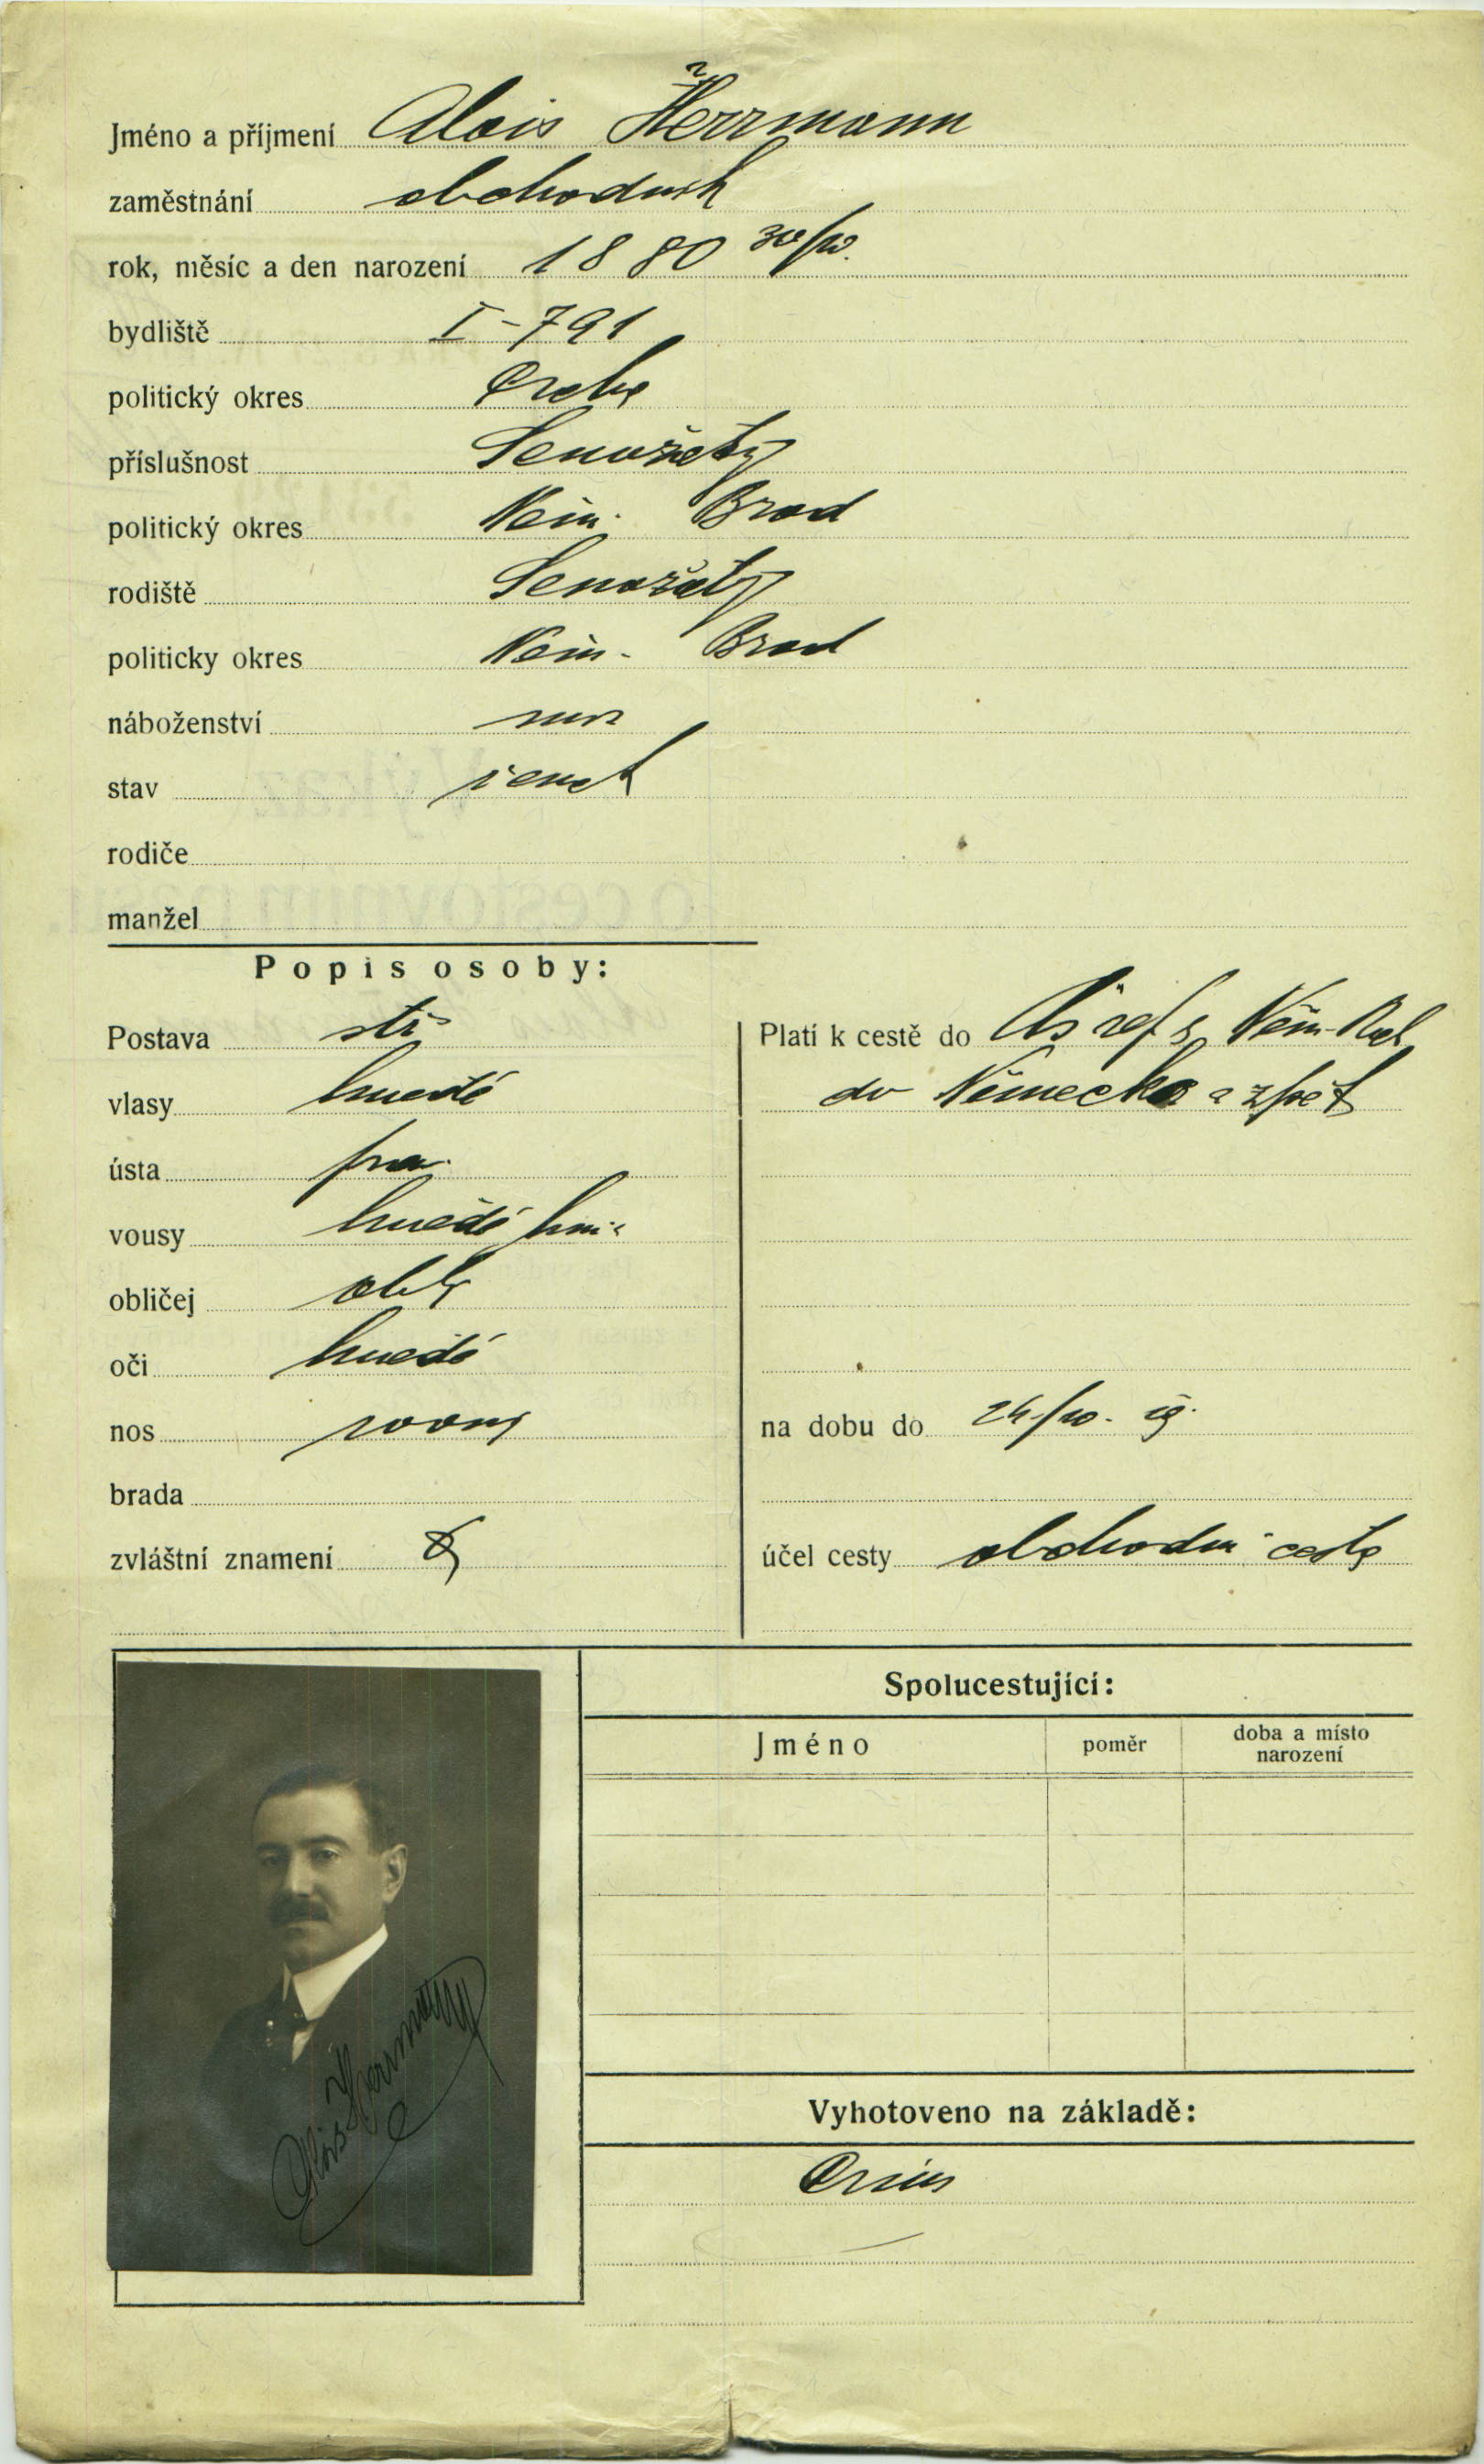 Jméno a příjmení Alois Herrmann
zaměstnání obchodník
rok, měsíc a den narození 1880 30/10.
bydliště I-791
politický okres Praha
příslušnost Senožaty
politický okres Něm. Brod
rodiště Senožaty
politicky okres Něm. Brod
náboženství
stav ženat
rodiče
manžel
Popis osoby:
Postava stř
vlasy hnědé
ústa pra.
vousy hnědé
obličej obl
oči hnědé
nos rovný
brada
zvláštní znamení
Platí k cestě do Čs rep Něm-Rak
do Německa a zpět
na dobu do 24/10. 19.
účel cesty obchodní cesta
Alois Herrmann
Spolucestující:
Jméno poměr doba a místo narození
Vyhotoveno na základě: